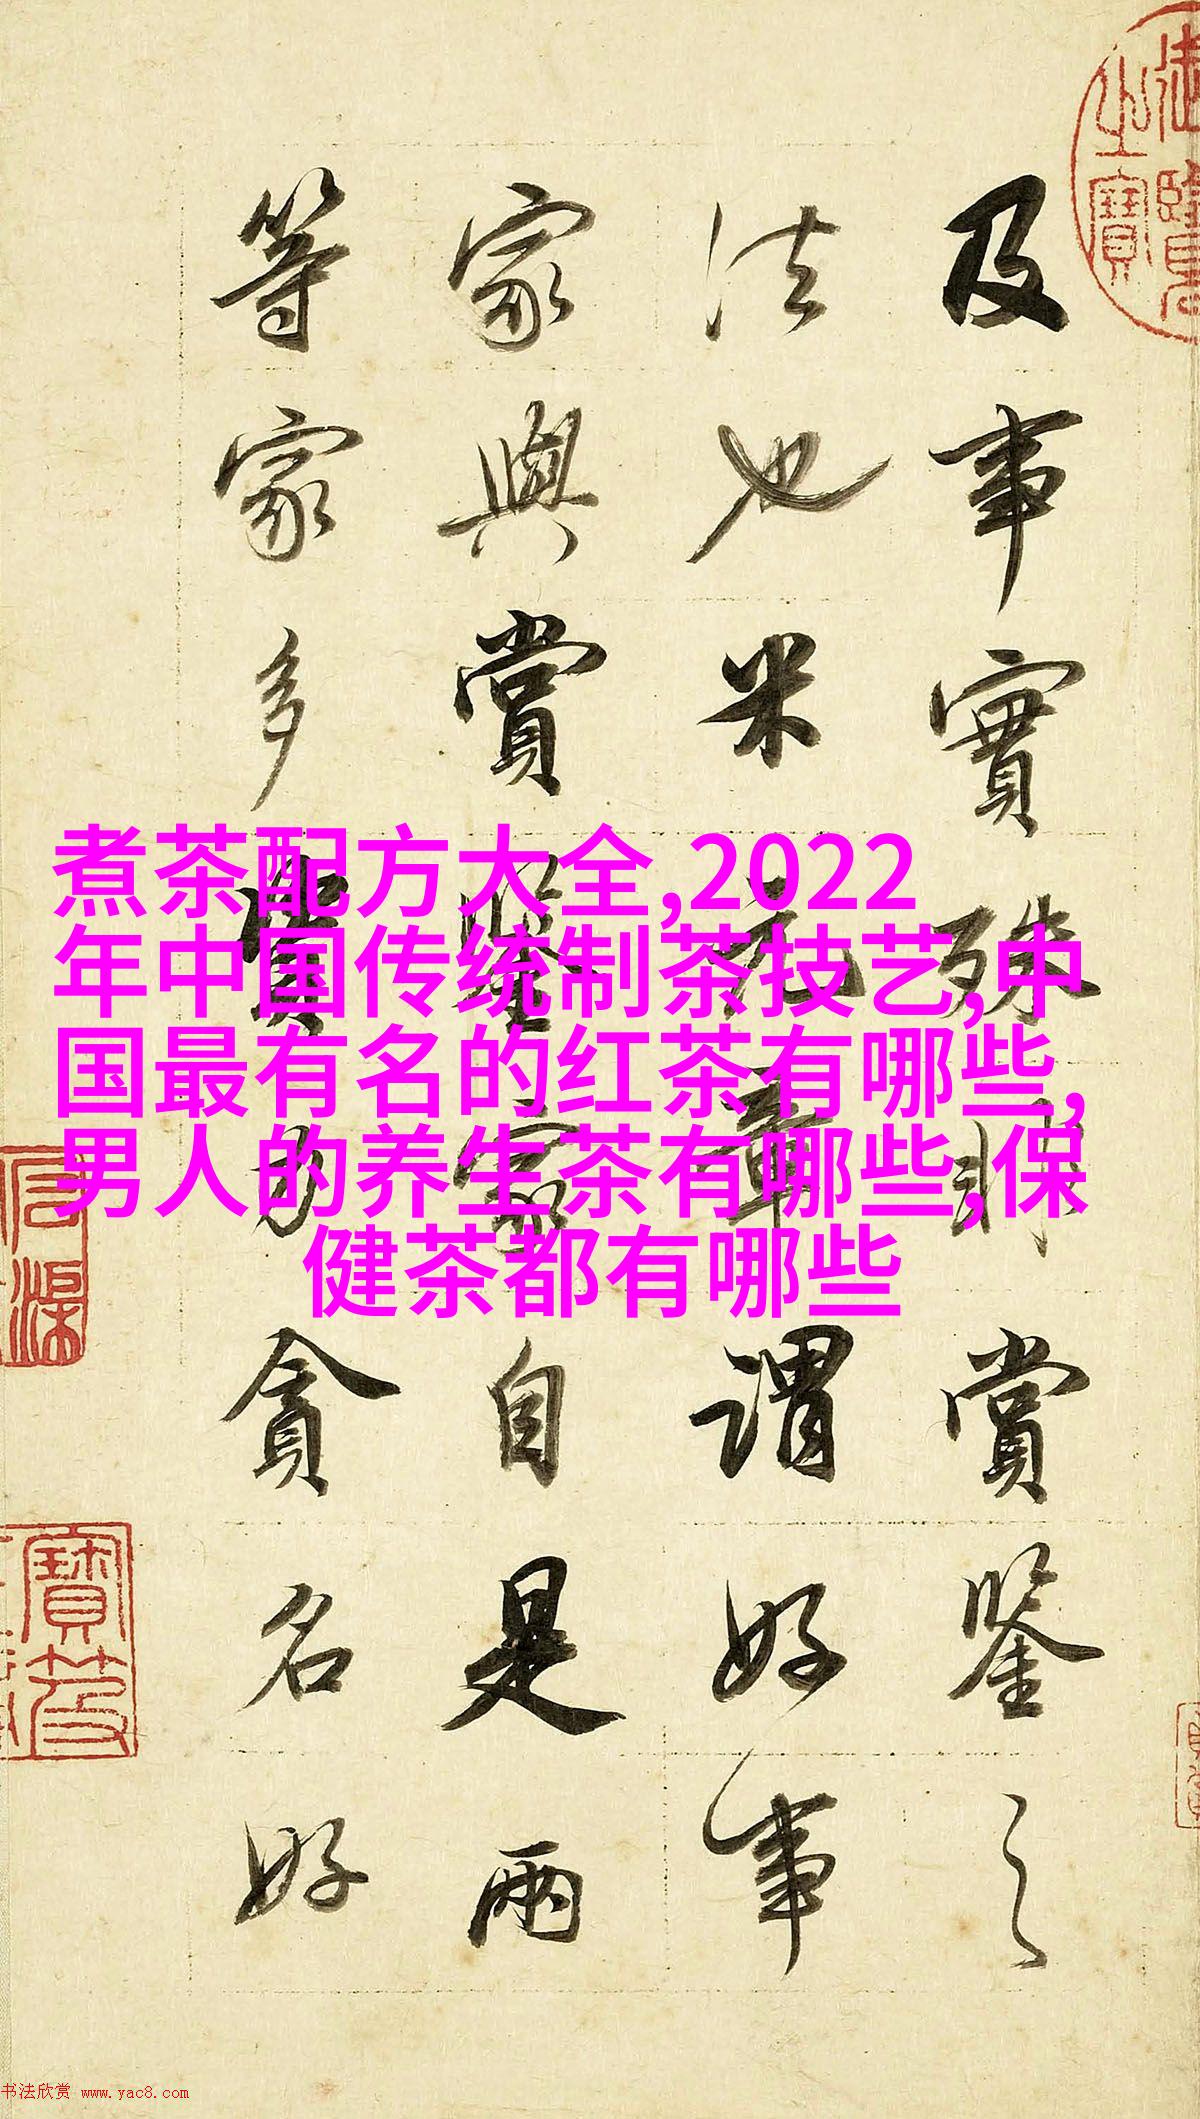 及事實殊非賞鑒之
法也米元章謂好事
家與賞鑒家自是兩
等家多資力貪名好
煮茶配方大全,2022
年中国传统制茶技艺,中
国最有名的红茶有哪些,
男人的养生茶有哪些,保
健茶都有哪些
书法欣赏 www.yac8.com